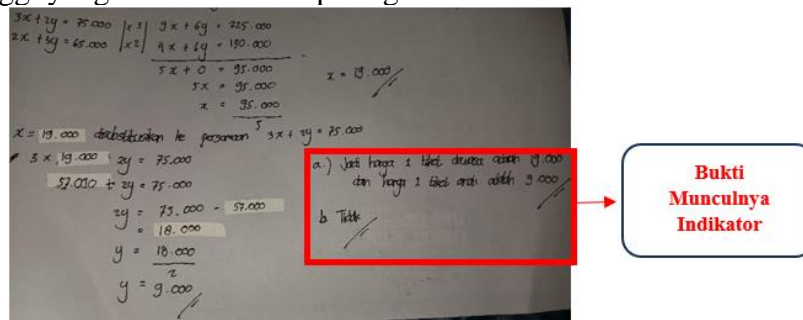 3x + 2y = 75.000 | x 3 | 9x + 6y = 225.000
2x + 3y = 65.000 | x 2 | 4x + 6y = 130.000
5x + 0 = 95.000
5x = 95.000
x = 95.000
5
x = 19.000
x = 19.000 disubstitusikan ke persamaan 3x + 2y = 75.000
3 x 19.000 + 2y = 75.000
57.000 + 2y = 75.000
2y = 75.000 - 57.000
= 18.000
y = 18.000
2
y = 9.000
a.) Jadi harga 1 tiket dewasa adalah 19.000
dan harga 1 tiket anak adalah 9.000
b. Tidak
Bukti
Munculnya
Indikator